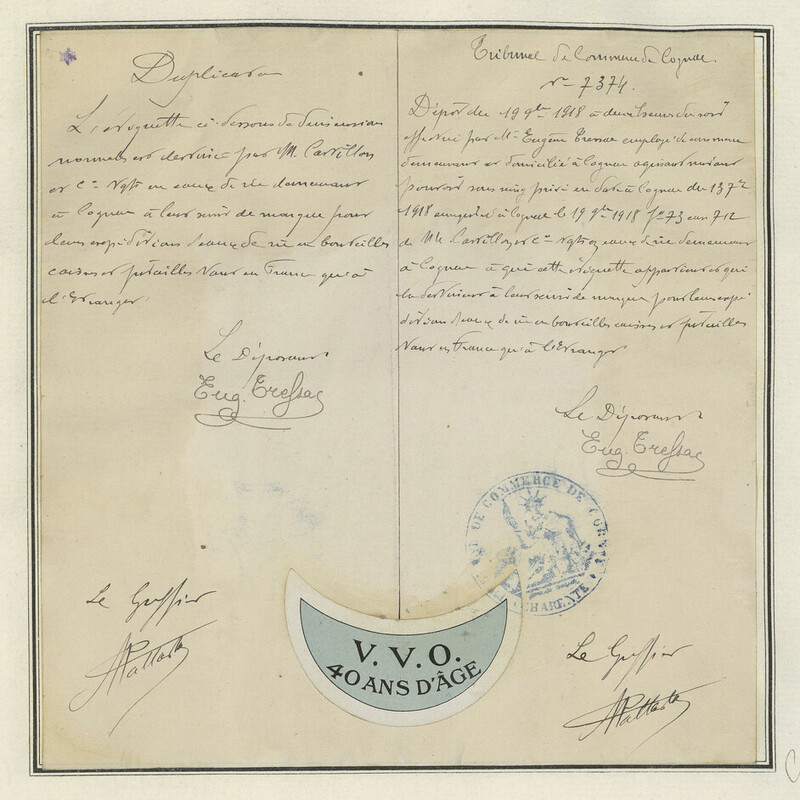 Duplicata
L'étiquette ci-dessous de dimensions
normales est destinée par M. Carrillon
et Cie Ngts en eaux de vie demeurant
à Cognac à leur servir de marque pour
leurs expéditions d'eaux de vie en bouteilles
caisses et futailles tant en France qu'à
l'Etranger.
Le Déposant
Eug. Tressac
Le Greffier
Tribunal de Commerce de Cognac
no 7374.
Dépôt du 19 9bre 1918 à deux heures du soir
effectué par Mr Eugène Tressac employé de commerce
demeurant et domicilié à Cognac agissant suivant
pouvoir sous seing privé en date à Cognac du 13 7bre
1918 enregistré à Cognac le 19 9bre 1918 fo 73 case 712
de MM. Carrillon et Cie Ngts en eaux de vie demeurant
à Cognac à qui cette étiquette appartient et qui
la destinent à leur servir de marque pour leurs expé
ditions d'eaux de vie en bouteilles caisses et futailles
tant en France qu'à l'Etranger
Le Déposant
Eug. Tressac
DE COMMERCE DE COGNAC
CHARENTE
Le Greffier
V.V.O.
40 ANS D'ÂGE